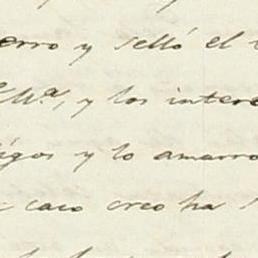 erro y selló el
Mª, y los intere
igos y lo amarro
caso creo ha